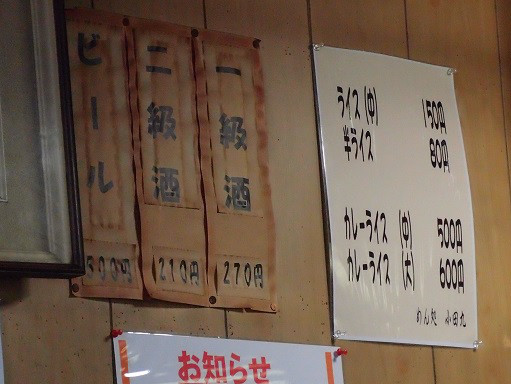 一級酒 270円
二級酒 210円
ビール 500円
ライス(中) 150円
半ライス 80円
カレーライス (中) 500円
カレーライス (大) 600円
めん処 小田九
お知らせ